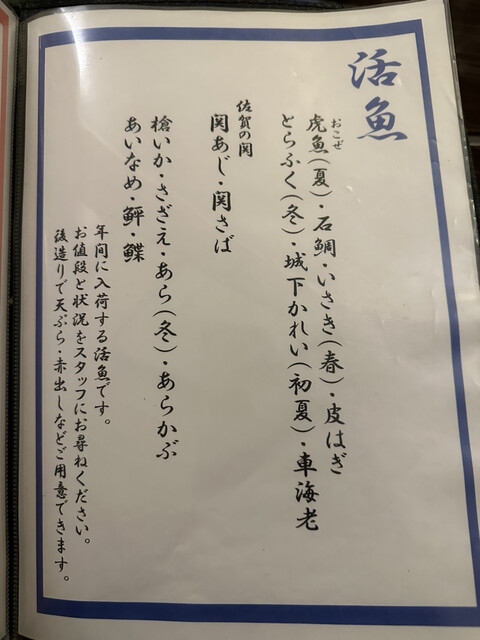 活魚
おこぜ
虎魚(夏)・石鯛・いさき(春)・皮はぎ
とらふく(冬)・城下かれい(初夏)・車海老
佐賀の関
関あじ・関さば
槍いか・さざえ・あら(冬)・あらかぶ
あいなめ・鮃・鰈
年間に入荷する活魚です。
お値段と状況をスタッフにお尋ねください。
後造りで天ぷら・赤出しなどご用意できます。